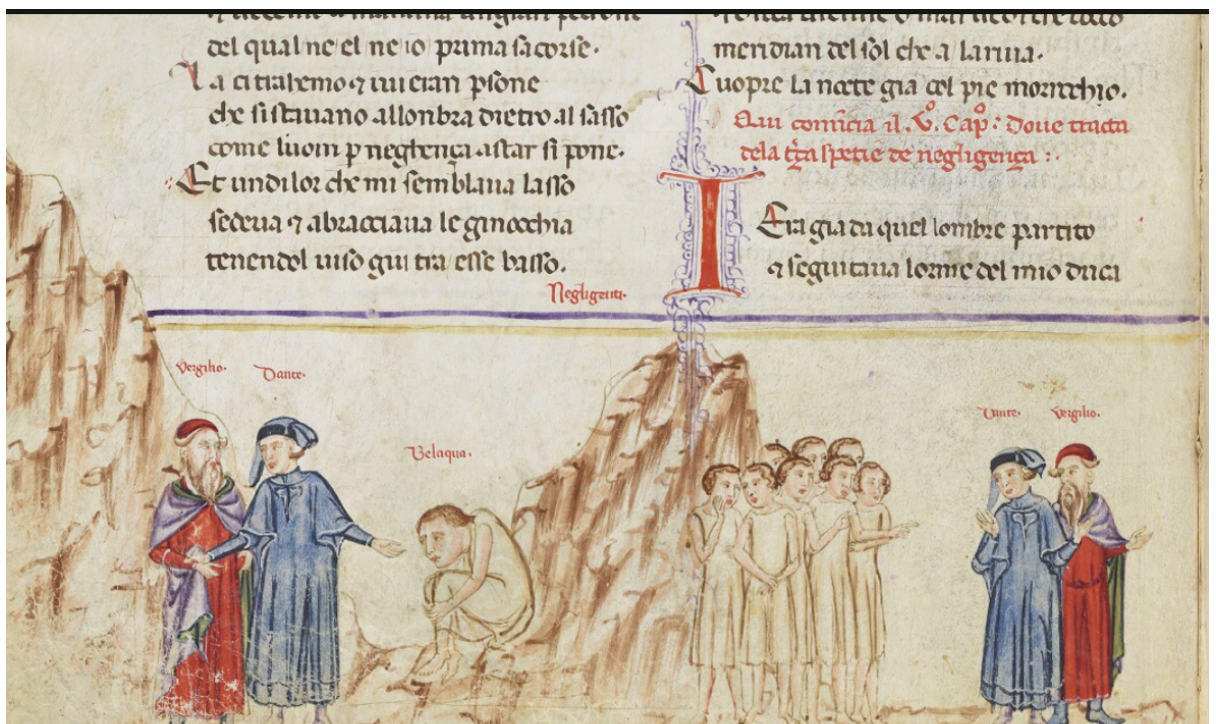 del qual ne el ne io prima sacorse.
La ci trahemo ⁊ iui eran psone
che si stauano allonbra dietro al sasso
come luom p neghença astar si pone.
Et un di lor che mi semblaua lasso
sedeua ⁊ abracciaua le ginocchia
tenendol uiso giu tra esse basso.
Negligenti.
meridian del sol che a la riua.
Cuopre la nocte gia col pie morrochio.
Qui comīcia il .Vº. Capº: doue tracta
dela tʒa spetie de negligença :.
I
Era gia da quel lombre partito
⁊ seguitaua lorme del mio duca
Vergilio. Dante.
Belaqua.
Dante. Vergilio.